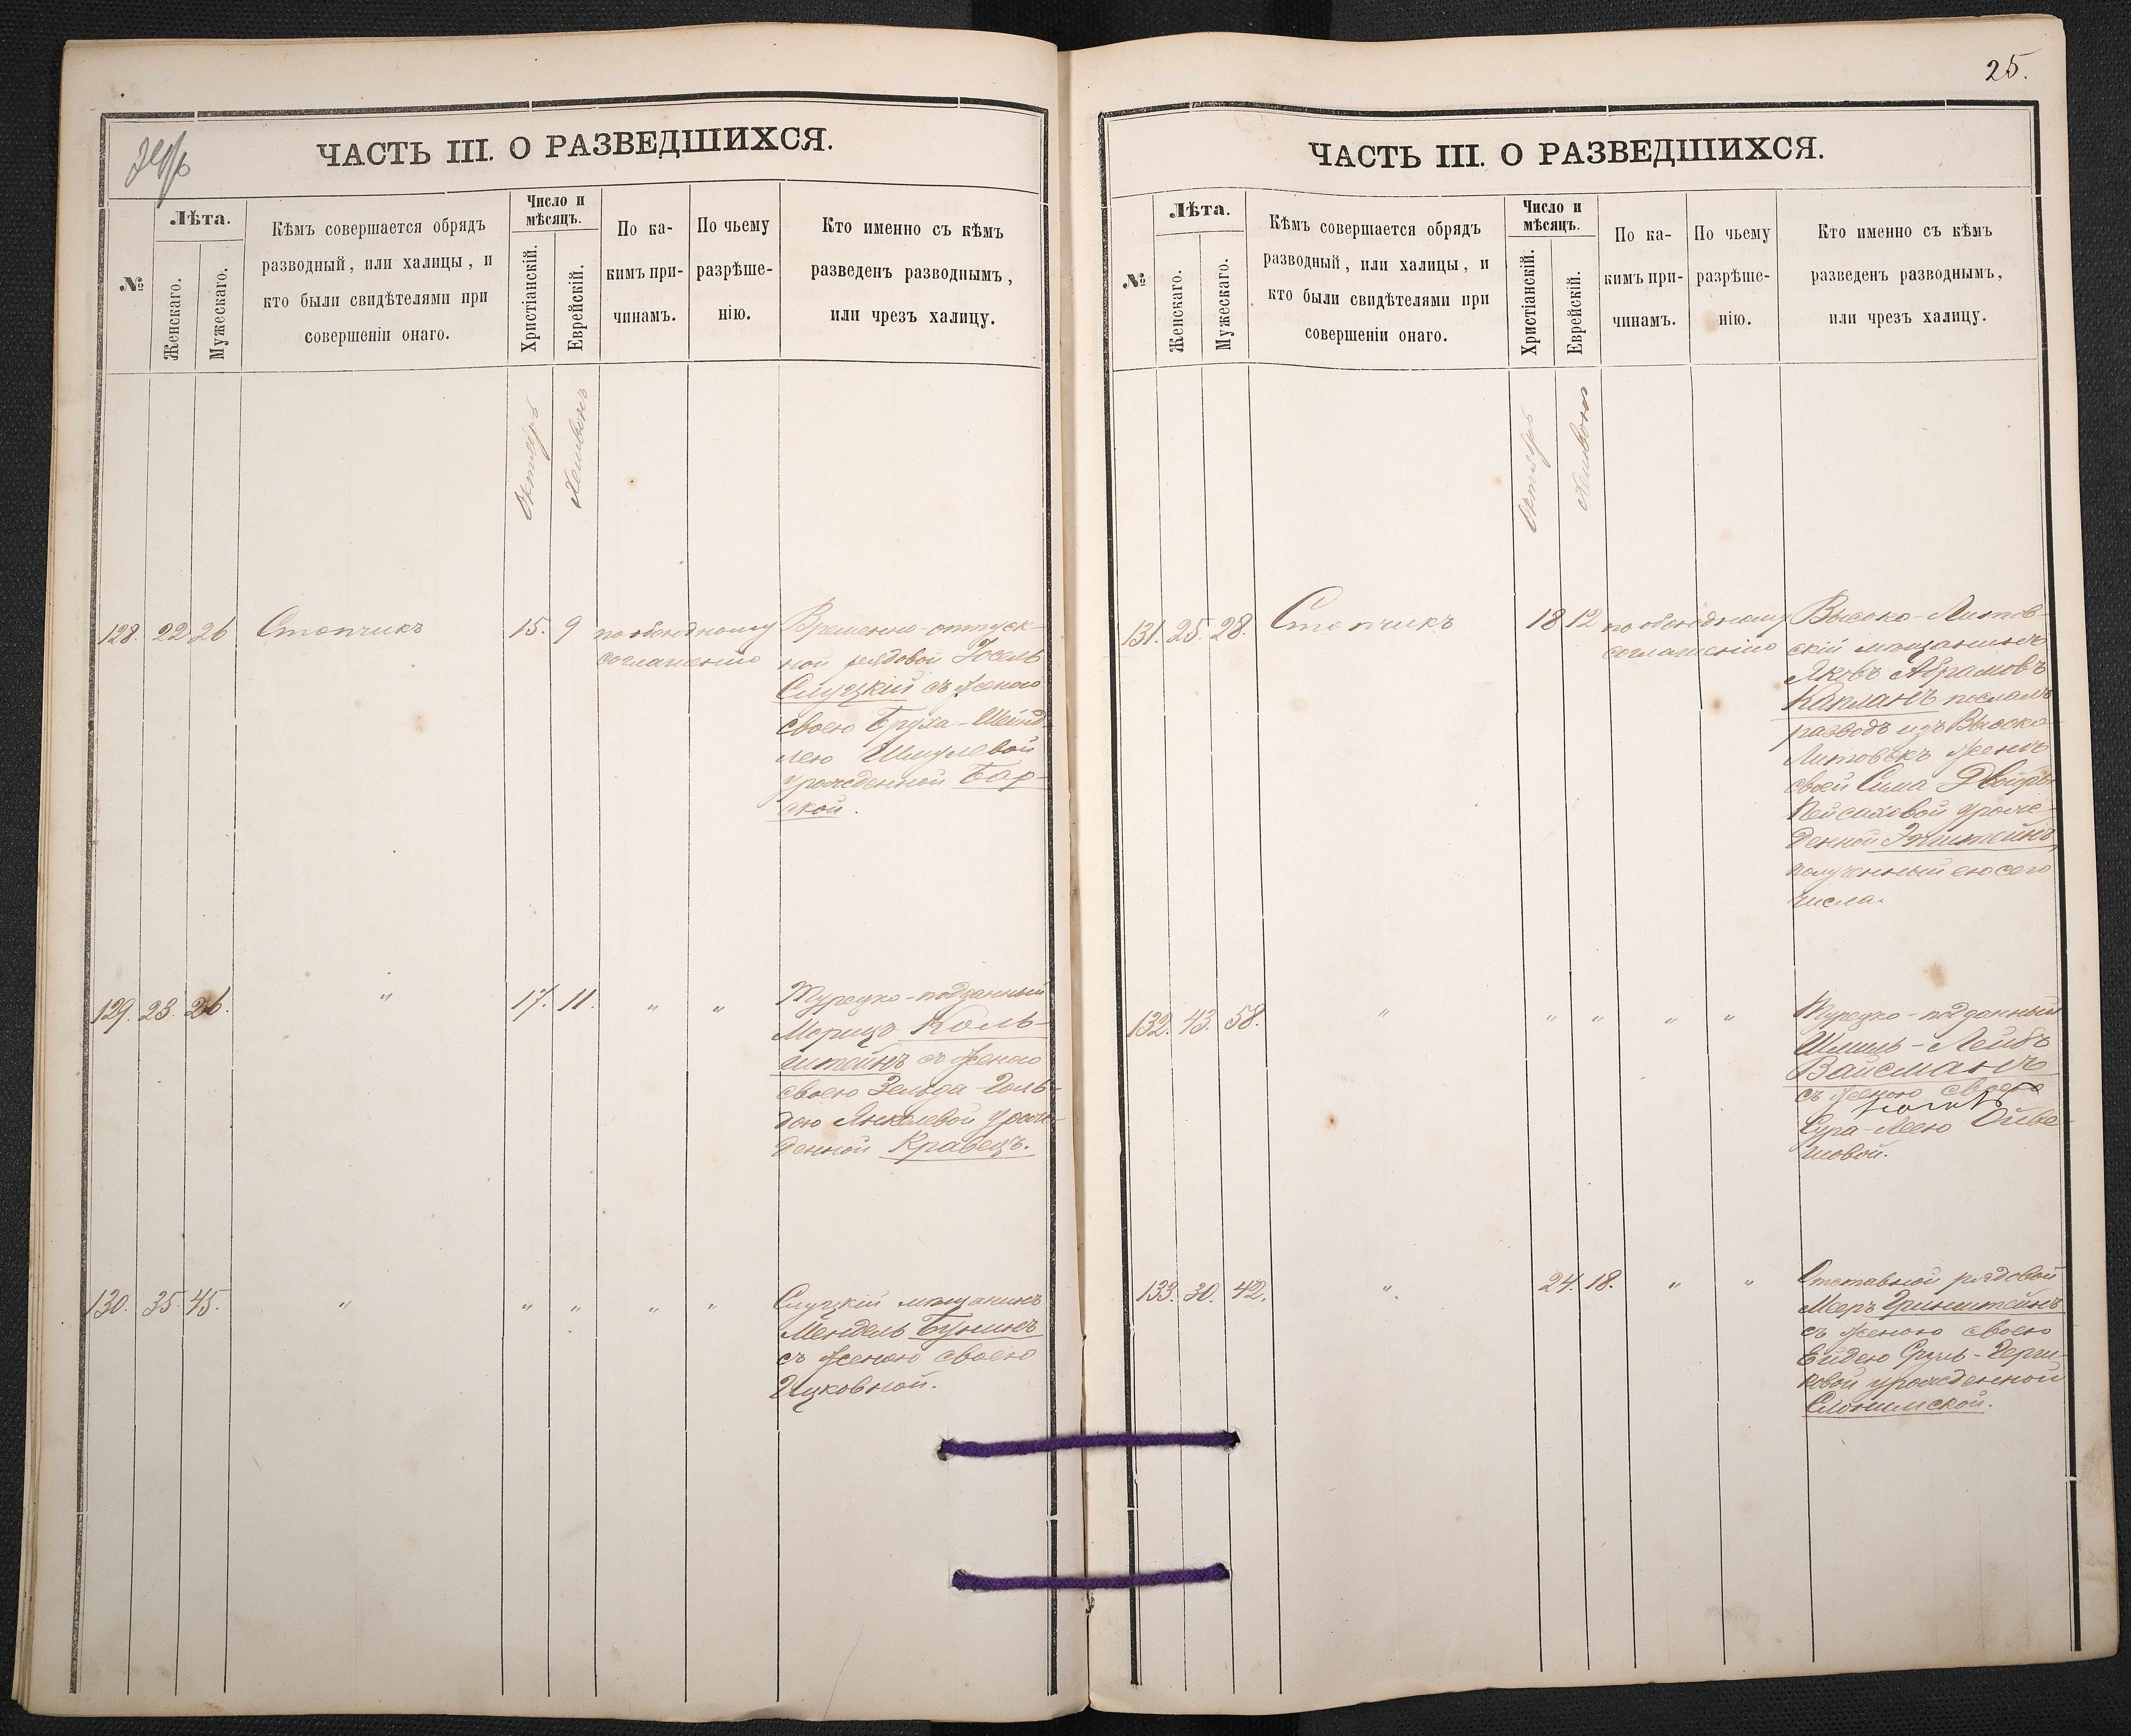 ЧАСТЬ III. О РАЗВЕДШИХСЯ.
№
Лѣта.
Женскаго.
Мужескаго.
Кѣмъ совершается обрядъ
разводный, или халицы, и
кто были свидѣтелями при
совершеніи онаго.
Число и
мѣсяцъ.
Христіанскій.
Еврейскій.
По ка-
кимъ при-
чинамъ.
По чьему
разрѣше-
нію.
Кто именно съ кѣмъ
разведенъ разводнымъ,
или чрезъ халицу.
Октябрь
Хешвонъ
128. 22 26 Стопчикъ 15. 9 по обоюдному
соглашенію
Временно-отпуск-
ной рядовой Іосель
Слуцкій съ женою
своею Бруха-Шейнд-
лею Шмулевой
урожденной Бар-
ской.
129. 23. 26. " 17. 11. " "
Турецко-подданный
Морицъ Коль-
штейнъ съ женою
своею Зельда-Голь-
дою Янкелевой урож-
денной Кравецъ.
130. 35. 45. " " " " "
Слуцкій мѣщанинъ
Мендель Бунинъ
съ женою своею
Ицковной.
25.
ЧАСТЬ III. О РАЗВЕДШИХСЯ.
№
Лѣта.
Женскаго.
Мужескаго.
Кѣмъ совершается обрядъ
разводный, или халицы, и
кто были свидѣтелями при
совершеніи онаго.
Число и
мѣсяцъ.
Христіанскій.
Еврейскій.
По ка-
кимъ при-
чинамъ.
По чьему
разрѣше-
нію.
Кто именно съ кѣмъ
разведенъ разводнымъ,
или чрезъ халицу.
Октябрь
Хешвонъ
131. 25. 28. Стопчикъ 18 12 по обоюдному
соглашенію
Высоко-Литов-
скій мѣщанинъ
Яковъ Абрамовъ
Капланъ послалъ
разводъ изъ Высоко-
Литовскъ женѣ
своей Сима Двойра
Пейсаховой урож-
денной Эпштейнъ,
полученный ею сего
числа.
132. 43. 58. " " " " "
Турецко-подданный
Шмиль-Лейбъ
Вайсманъ
съ женою своею
Сура-Леею Ойзе-
шовой.
133. 30. 42. " 24. 18. " "
Отставной рядовой
Мееръ Гринштейнъ
съ женою своею
Ейдею Сруль-Герш-
ковой урожденной
Слонимской.